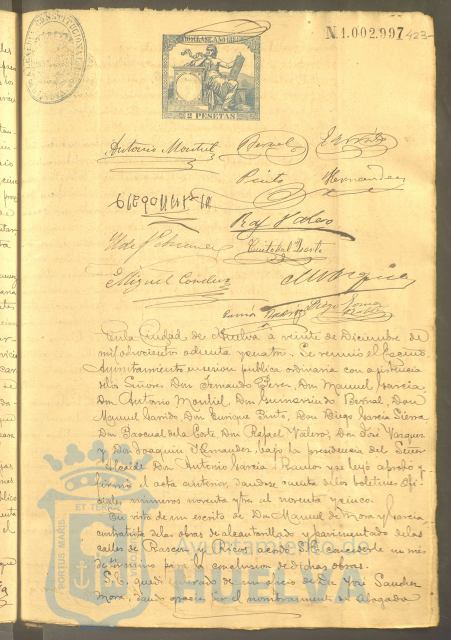 N 1.002.997
423
2 PESETAS
Antonio Montiel Bernal
Pinto Hernandez
Raf Valero
Cristobal
Miguel
Ramón Diego
En la Ciudad de Huelva a veinte de Diciembre de
mil ochocientos ochenta y cuatro. Se reunió el Excmo.
Ayuntamiento en sesion publica ordinaria con asistencia
de los Señores Don Fernando Perez, Don Manuel Garcia,
Don Antonio Montiel, Don Gumersindo Bernal, Don
Manuel Garrido, Don Enrique Pinto, Don Diego Garcia Sierra
Don Pascual de la Corte, Don Rafael Valero, Don José Vazquez
y Don Joaquin Hernandez, bajo la presidencia del Señor
Alcalde Don Antonio Garcia Ramos y se leyó aprobó y
firmó el acta anterior, dandose cuenta de los boletines ofi-
ciales numeros noventa y tres al noventa y cinco.
En vista de un escrito de Don Manuel de Mora y Garcia
contratista de las obras de alcantarillado y pavimentado de las
calles de Rascon y Ricos acordó S.E. concederle un mes
de termino para la conclusion de dichas obras.
S.E. quedó enterado de un oficio de Dn José Sanchez
Mora, dando gracias por el nombramiento de Abogado
PORTUS MARIS ET TERRÆ
Ayuntamiento de
HUELVA